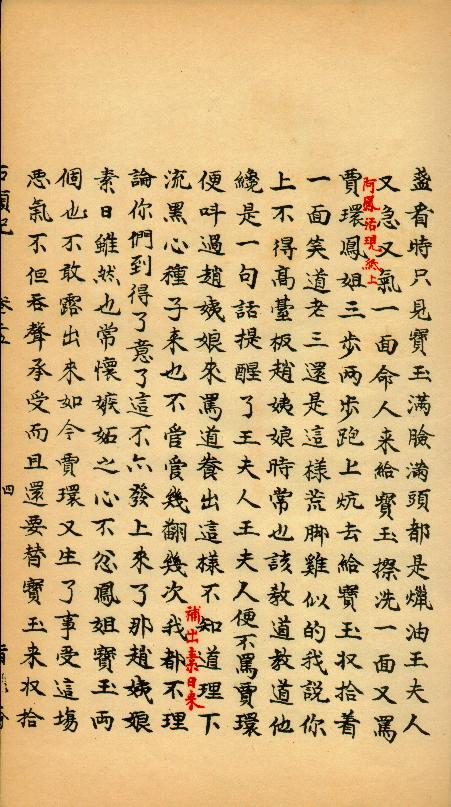 盞看時只見寶玉滿臉滿頭都是爉油王夫人
又急又氣一面命人来給寶玉擦洗一面又罵
阿鳳活現紙上
賈環鳳姐三歩兩歩跑上炕去給寶玉収拾着
一面笑道老三還是這樣荒脚雞似的我説你
上不得高臺板趙姨娘時常也該教道教道他
纔是一句話提醒了王夫人王夫人便不罵賈環
便呌過趙姨娘來罵道養出這樣不知道理下
補出素日来
流黑心種子来也不管管幾翻幾次我都不理
論你們到得了意了這不六發上來了那趙姨娘
素日雖然也常懷嫉妬之心不忿鳳姐寶玉両
個也不敢露出来如今賈環又生了事受這塲
悪氣不但吞聲承受而且還要替寶玉来収拾
四